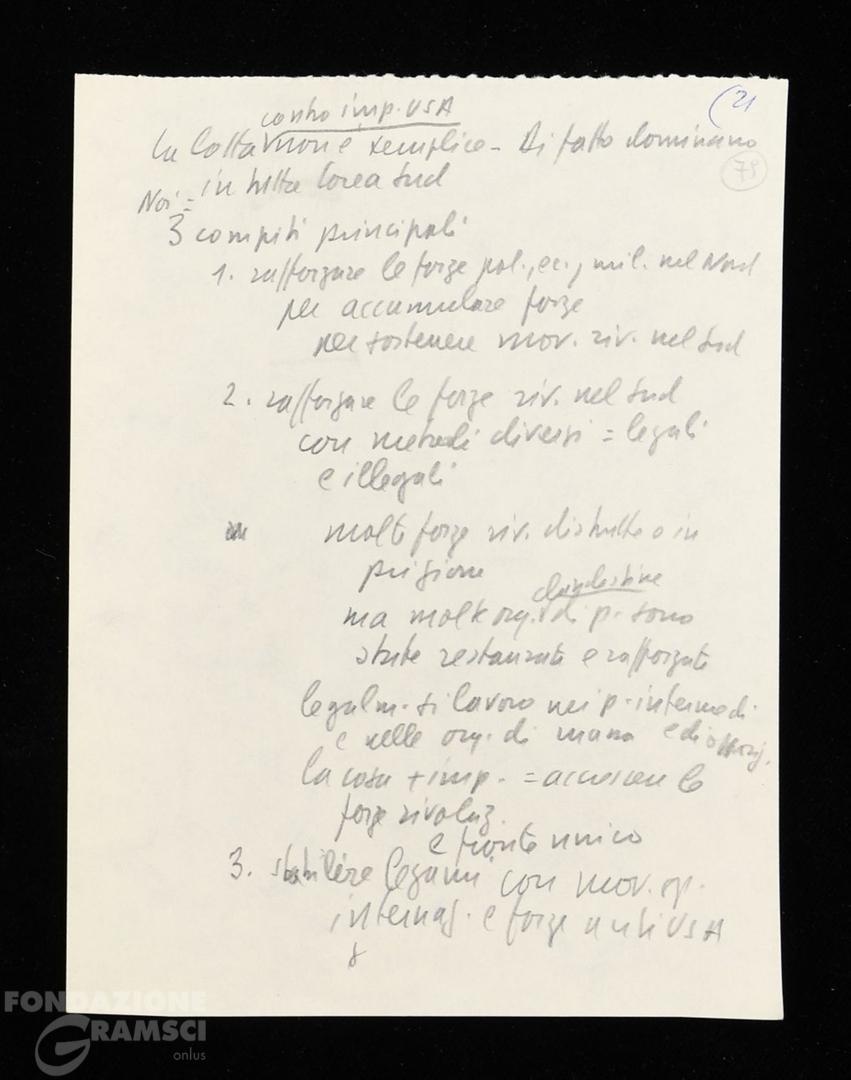 (21
79
contro imp. USA
La lotta non è semplice - Di fatto dominano
in tutta Corea Sud
Noi =
3 compiti principali
1. rafforzare le forze pol., ec., mil. nel Nord
per accumulare forze
per sostenere mov. riv. nel Sud
2. rafforzare le forze riv. nel Sud
con metodi diversi = legali
e illegali
molte forze riv. distrutte o in
prigione
clandestine
ma molte org. di p. sono
state restaurate e rafforzate
legalm. si lavora nei p. intermedi
e nelle org. di massa e di oppoz.
la cosa + imp. = accrescere le
forze rivoluz.
e fronte unico
3. stabilire legami con mov. op.
internaz. e forze anti USA
FONDAZIONE
GRAMSCI
onlus